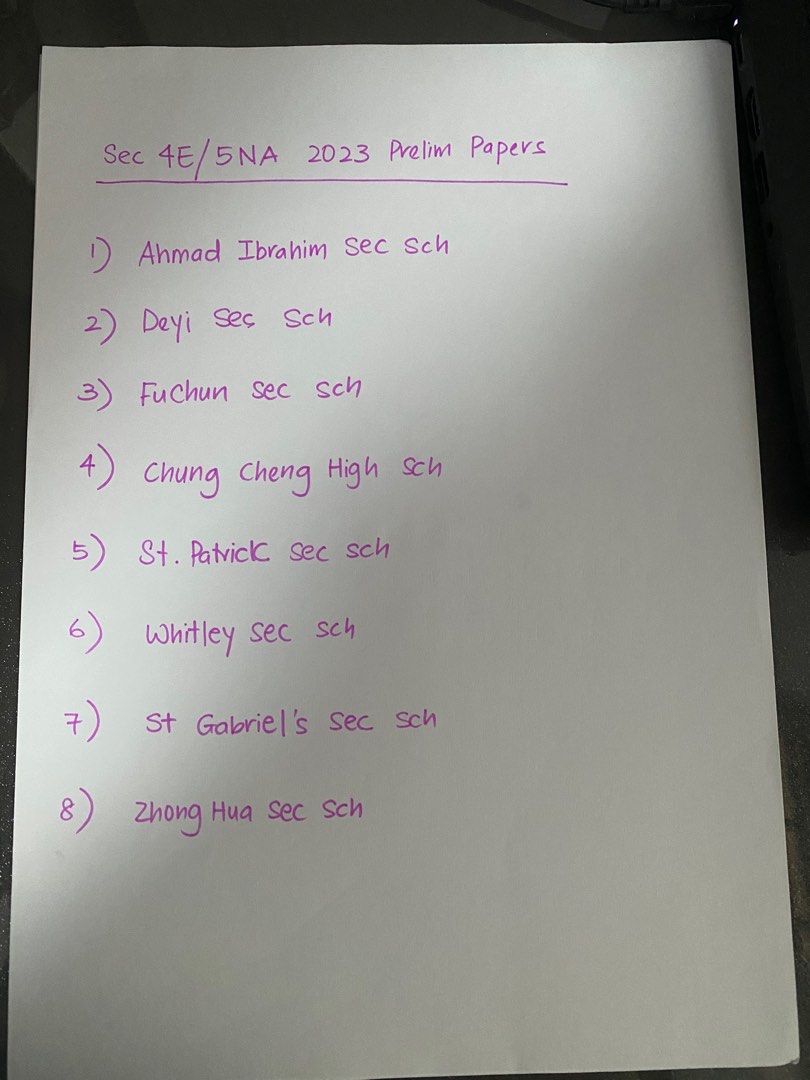 Sec 4E/5NA 2023 Prelim Papers
1) Ahmad Ibrahim Sec Sch
2) Deyi Sec Sch
3) FuChun Sec Sch
4) Chung Cheng High Sch
5) St. Patrick Sec Sch
6) Whitley Sec Sch
7) St Gabriel's Sec Sch
8) Zhong Hua Sec Sch